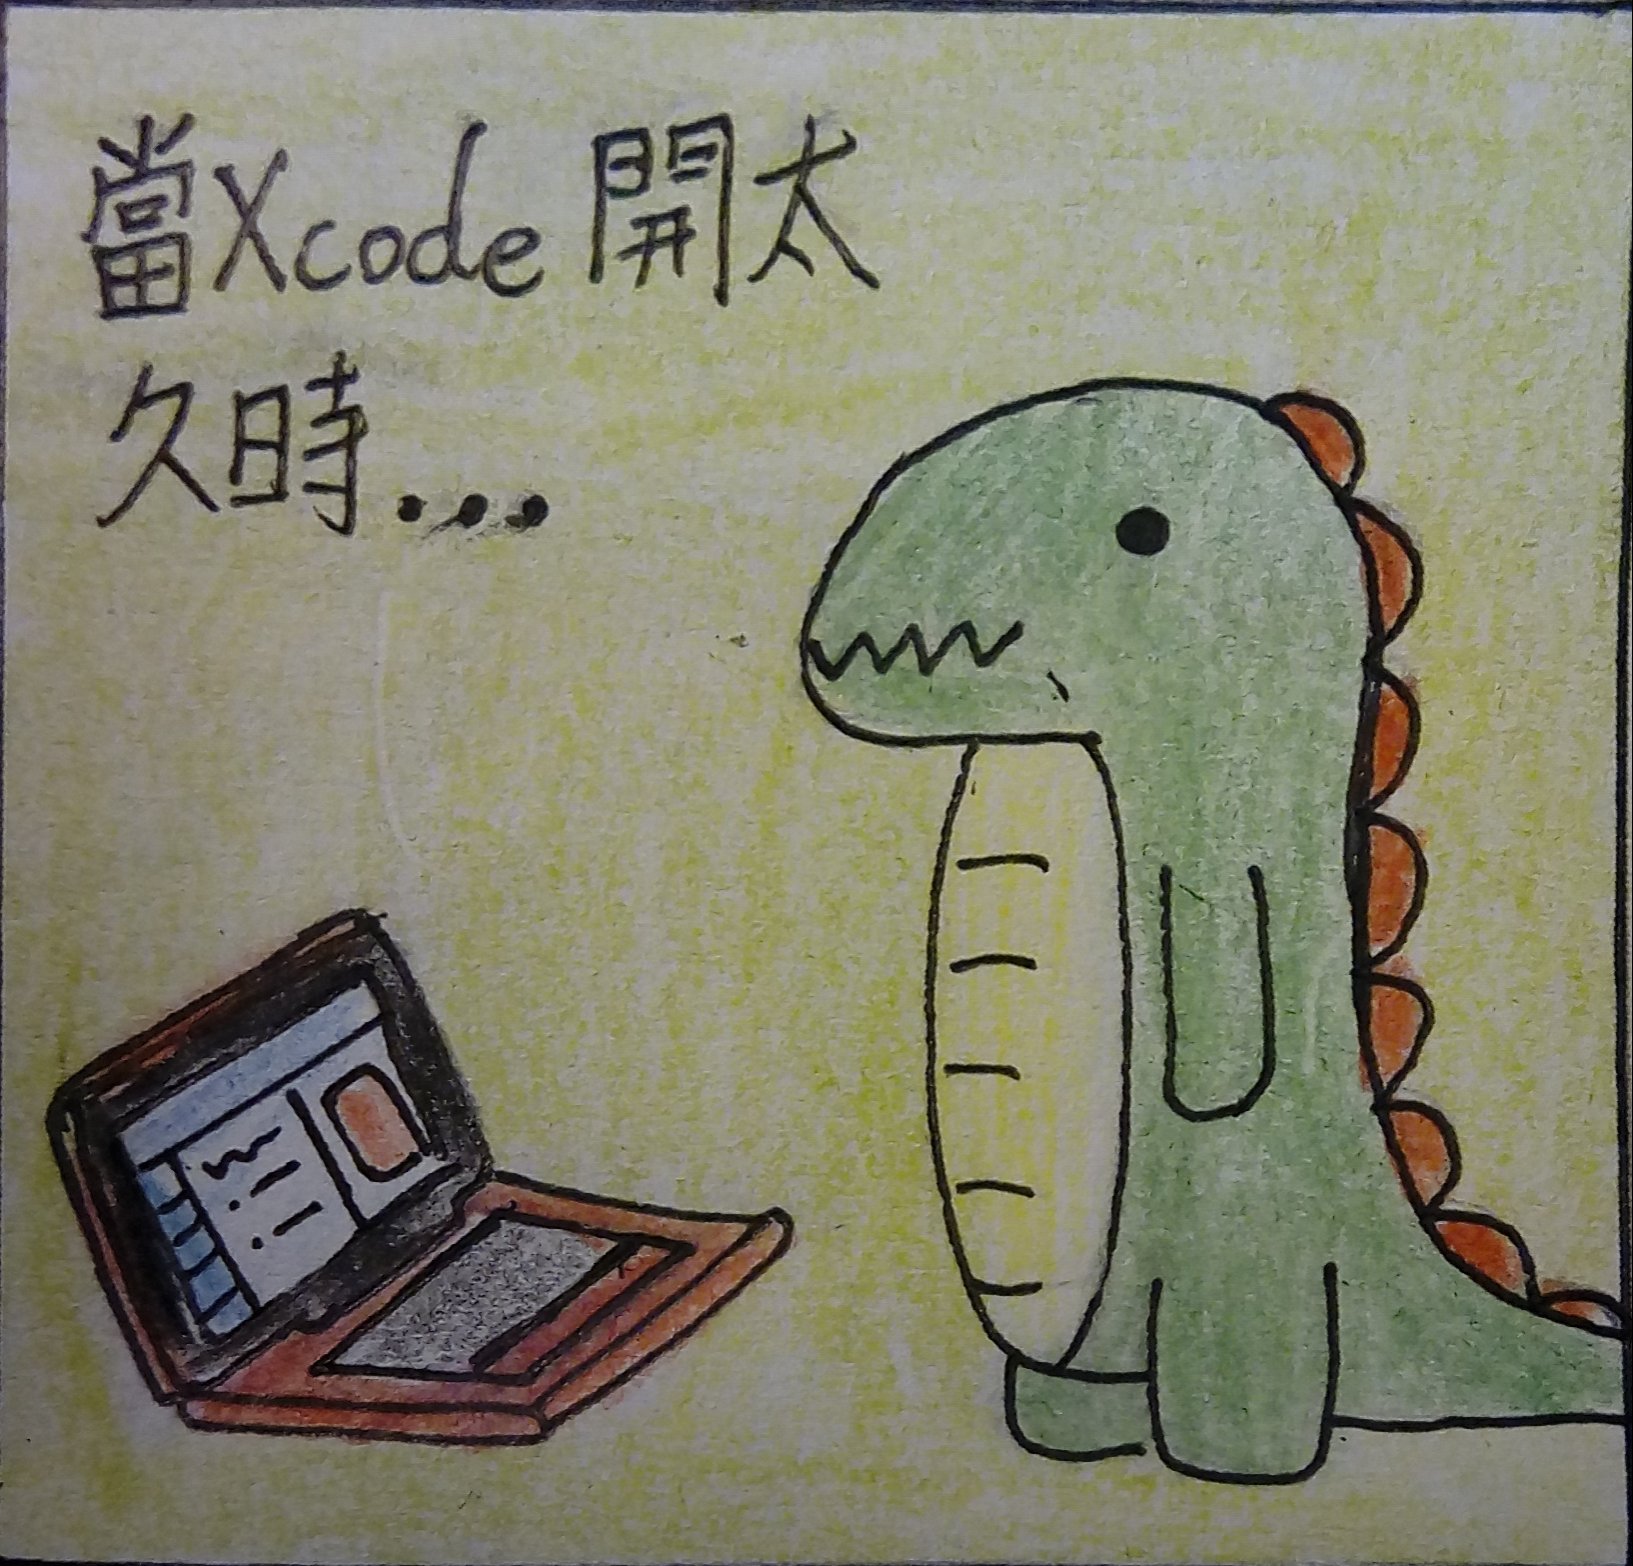 當Xcode開太
久時...